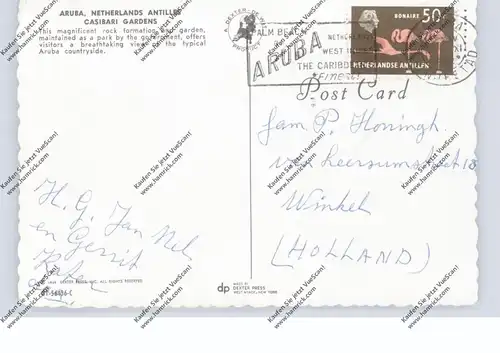 ARUBA, NETHERLANDS ANTILLES
CASIBARI GARDENS
This magnificent rock formation and garden,
maintained as a park by the government, offers
visitors a breathtaking view of the typical
Aruba countryside.
DEXTER
PRODUCT
PALM BEACH
ARUBA
NETHERLANDS
WEST
THE CARIBBEAN
FINEST
BONAIRE 50
NEDERLANDSE ANTILLEN
Post Card
Fam P. Honingh
Winkel
(HOLLAND)
H. G. Jan Nel
en Gerrit
DEXTER PRESS, INC. ALL RIGHTS RESERVED
dp
MADE BY
DEXTER PRESS
WEST NYACK, NEW YORK
Kaufen Sie jetzt VueScan!
www.hamrick.com